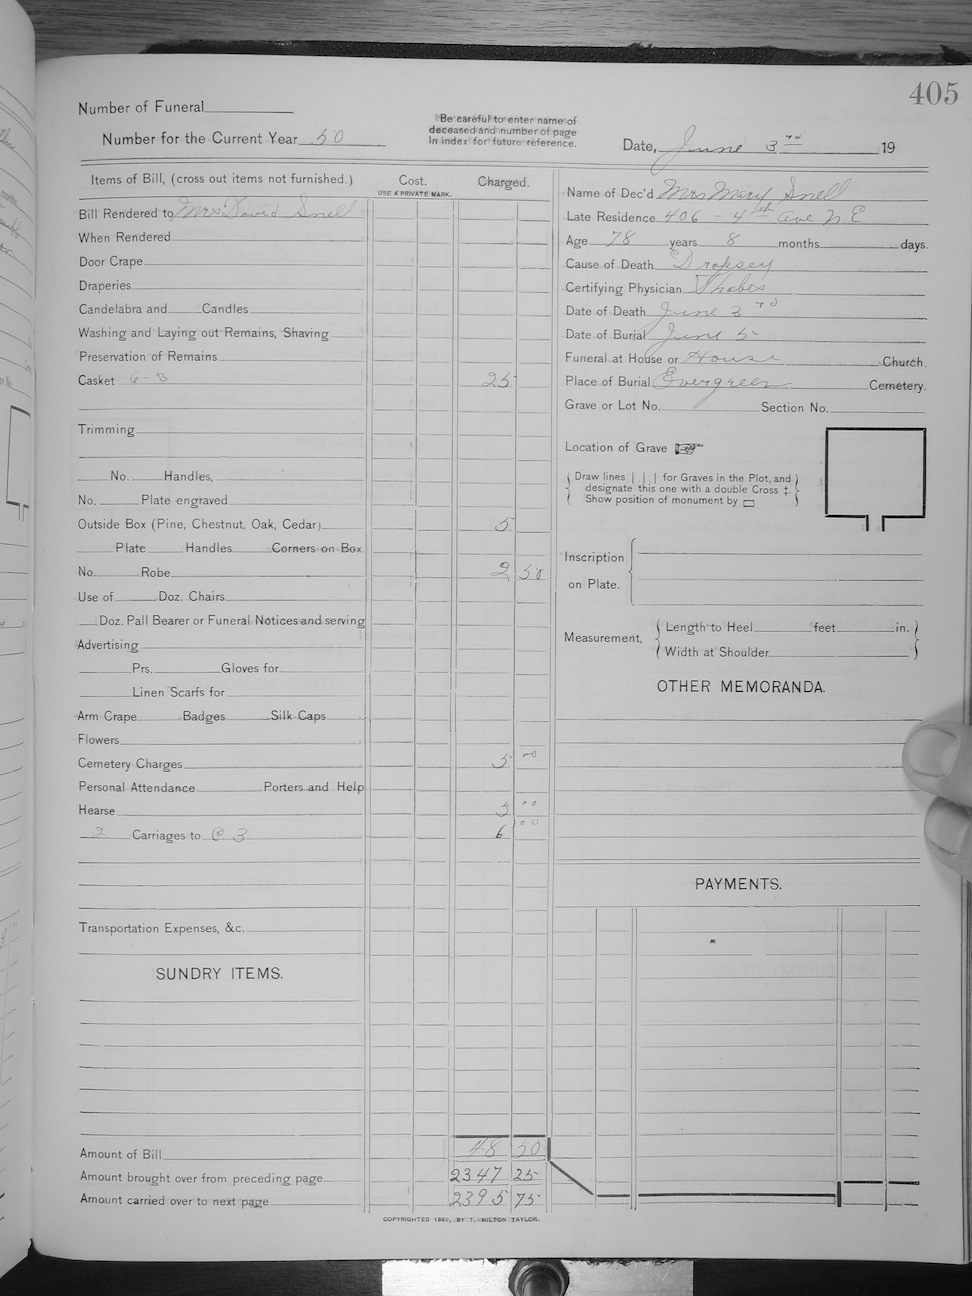 405
Number of Funeral
Number for the Current Year 50
Be careful to enter name of
deceased and number of page
in index for future reference.
Date, June 3rd 19
Items of Bill, (cross out items not furnished.)
Cost.
USE A PRIVATE MARK.
Charged.
Bill Rendered to Mrs David Snell
When Rendered
Door Crape
Draperies
Candelabra and Candles
Washing and Laying out Remains, Shaving
Preservation of Remains
Casket 6-3 25
Trimming
No. Handles,
No. Plate engraved
Outside Box (Pine, Chestnut, Oak, Cedar) 5
Plate Handles Corners on Box.
No. Robe 2 50
Use of Doz. Chairs
Doz. Pall Bearer or Funeral Notices and serving
Advertising
Prs. Gloves for
Linen Scarfs for
Arm Crape Badges Silk Caps
Flowers
Cemetery Charges 5 00
Personal Attendance Porters and Help
Hearse 5 00
2 Carriages to @ 3 6 00
Transportation Expenses, &c.
SUNDRY ITEMS.
Amount of Bill 48 50
Amount brought over from preceding page 2347 25
Amount carried over to next page 2395 75
Name of Dec'd Mrs Mary Snell
Late Residence 406 - 4th Ave N E
Age 78 years 8 months days.
Cause of Death Dropsey
Certifying Physician
Date of Death June 3rd
Date of Burial June 5
Funeral at House or House Church.
Place of Burial Evergreen Cemetery.
Grave or Lot No. Section No.
Location of Grave
Draw lines | | | for Graves in the Plot, and
designate this one with a double Cross ‡.
Show position of monument by
Inscription
on Plate.
Measurement,
Length to Heel feet in.
Width at Shoulder
OTHER MEMORANDA.
PAYMENTS.
COPYRIGHTED 1890, BY T. MILTON TAYLOR.